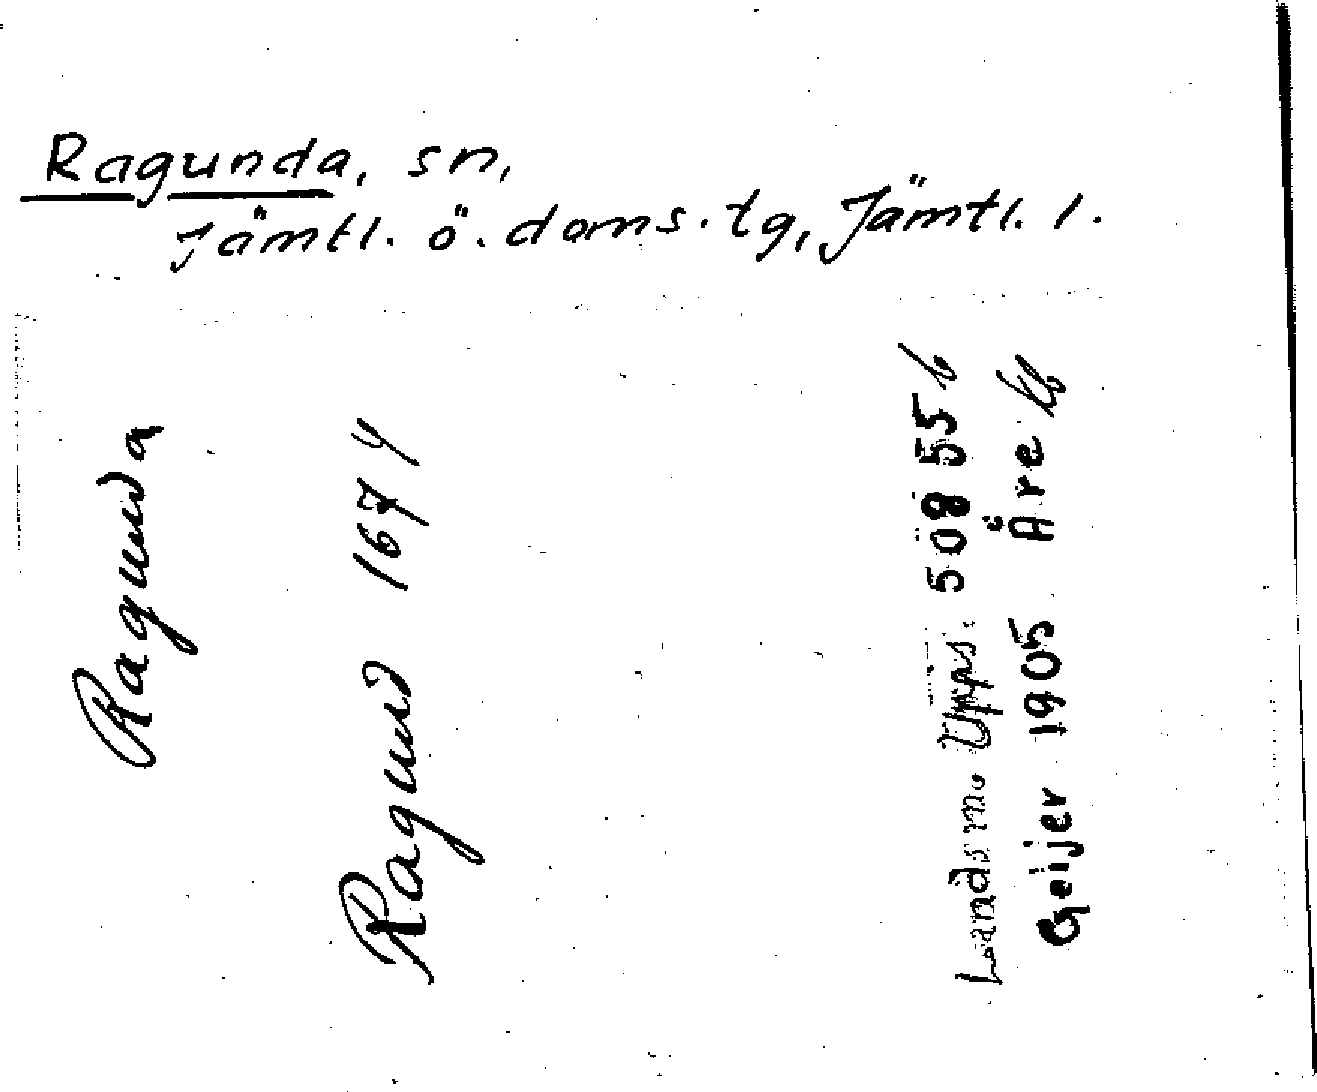 Ragunda, sn,
Jämtl. ö. doms. tg, Jämtl. l.
Ragunda
Ragund 1674
Landsm. Upps. 508 55 b
Geijer 1905 Åre kb